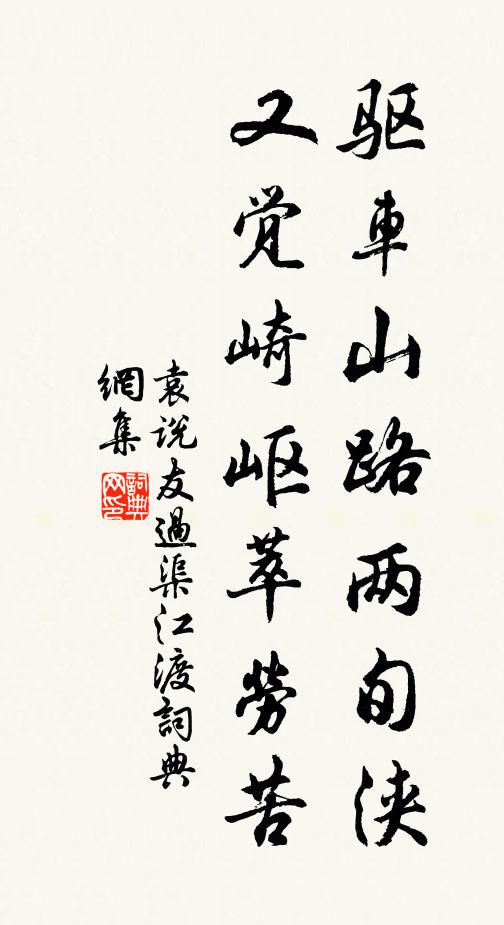 驱車山路两旬浃
又觉崎岖萃勞苦
袁说友過渠江渡詞典
網集
詞典
网印